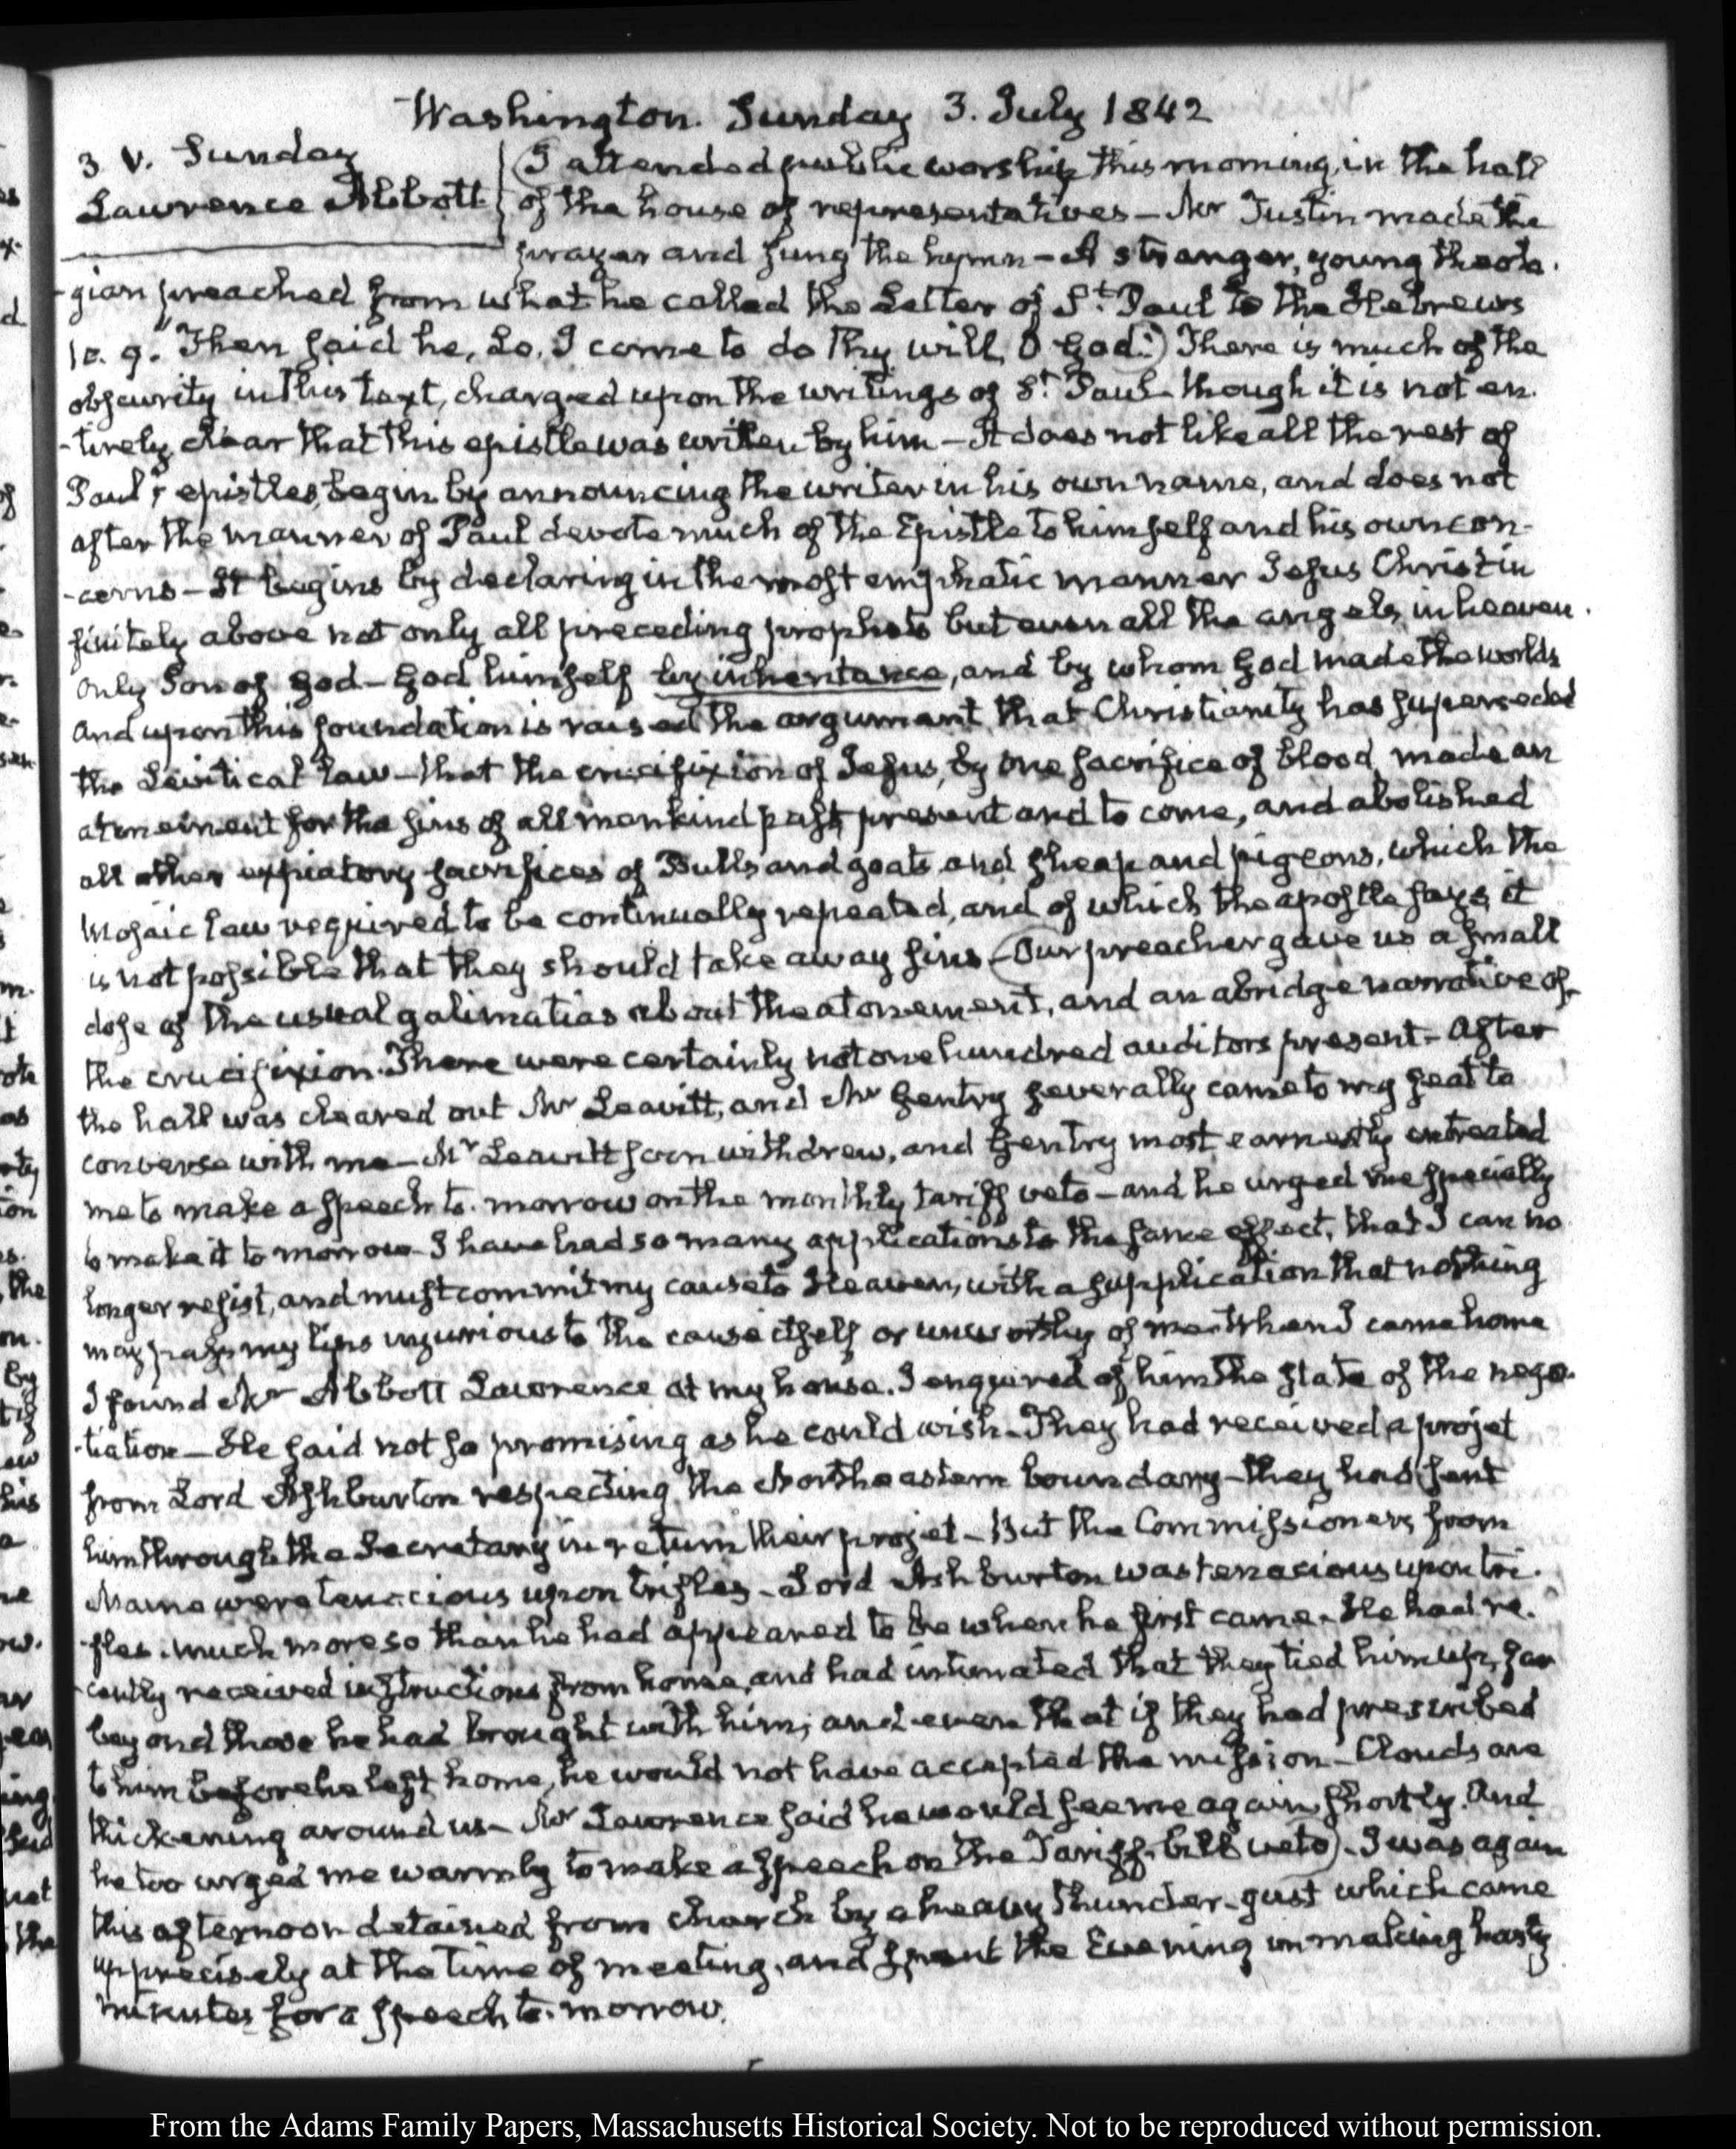 Washington. Sunday 3. July 1842
3. V. Sunday
Lawrence Abbott
I attended public worship this morning, in the hall
of the house of representatives — Mr Tustin made the
prayer and sung the hymn — A stranger, young theolo-
-gian preached from what he called the Letter of St. Paul to the Hebrews
10. 9. "Then said he, Lo, I come to do thy will, O God.") There is much of the
obscurity in this text, charged upon the writings of St. Paul though it is not en-
-tirely clear that this epistle was written by him — It does not like all the rest of
Paul's epistles, begin by announcing the writer in his own name, and does not
after the manner of Paul devote much of the Epistle to himself and his own con-
-cerns — It begins by declaring in the most emphatic manner Jesus Christ in
finitely above not only all preceding prophets but even all the angels in heaven.
only Son of God — God himself by inheritance, and by whom God made the worlds
and upon this foundation is raised the argument that Christianity has superseded
the Levitical Law — that the crucifixion of Jesus, by one sacrifice of blood, made an
atonement for the sins of all mankind past, present and to come, and abolished
all other expiatory sacrifices of Bulls and goats, and sheep and pigeons, which the
Mosaic law required to be continually repeated, and of which the apostle says, it
is not possible that they should take away sins — (Our preacher gave us a small
dose of the usual galimatias about the atonement, and an abridge narrative of
the crucifixion. There were certainly not one hundred auditors present — After
the hall was cleared out Mr Leavitt, and Mr Gentry severally came to my seat to
converse with me — Mr Leavitt soon withdrew, and Gentry most earnestly entreated
me to make a speech to-morrow on the monthly tariff veto — and he urged me specially
to make it to morrow — I have had so many applications to the same effect, that I can no
longer resist, and must commit my cause to Heaven, with a supplication that nothing
may pass my lips injurious to the cause itself or unworthy of me — When I came home
I found Mr Abbott Lawrence at my house. I enquired of him the state of the nego-
-tiation — He said not so promising as he could wish — They had received a projet
from Lord Ashburton respecting the Northeastern boundary — they had sent
him through the Secretary in return their projet — But the Commissioners from
Maine were tenacious upon trifles — Lord Ashburton was tenacious upon tri-
-fles. much more so than he had appeared to be when he first came — He had re-
-cently received instructions from home, and had intimated that they tied him up, far
beyond those he had brought with him; and even that if they had prescribed
to him before he left home, he would not have accepted the mission — Clouds are
thickening around us — Mr Lawrence said he would see me again, shortly. And
he too urged me warmly to make a speech on the Tariff-bill veto) — I was again
this afternoon detained from church by a heavy thunder-gust which came
up precisely at the time of meeting, and spent the Evening in making hasty
minutes for a speech to-morrow.
From the Adams Family Papers, Massachusetts Historical Society. Not to be reproduced without permission.